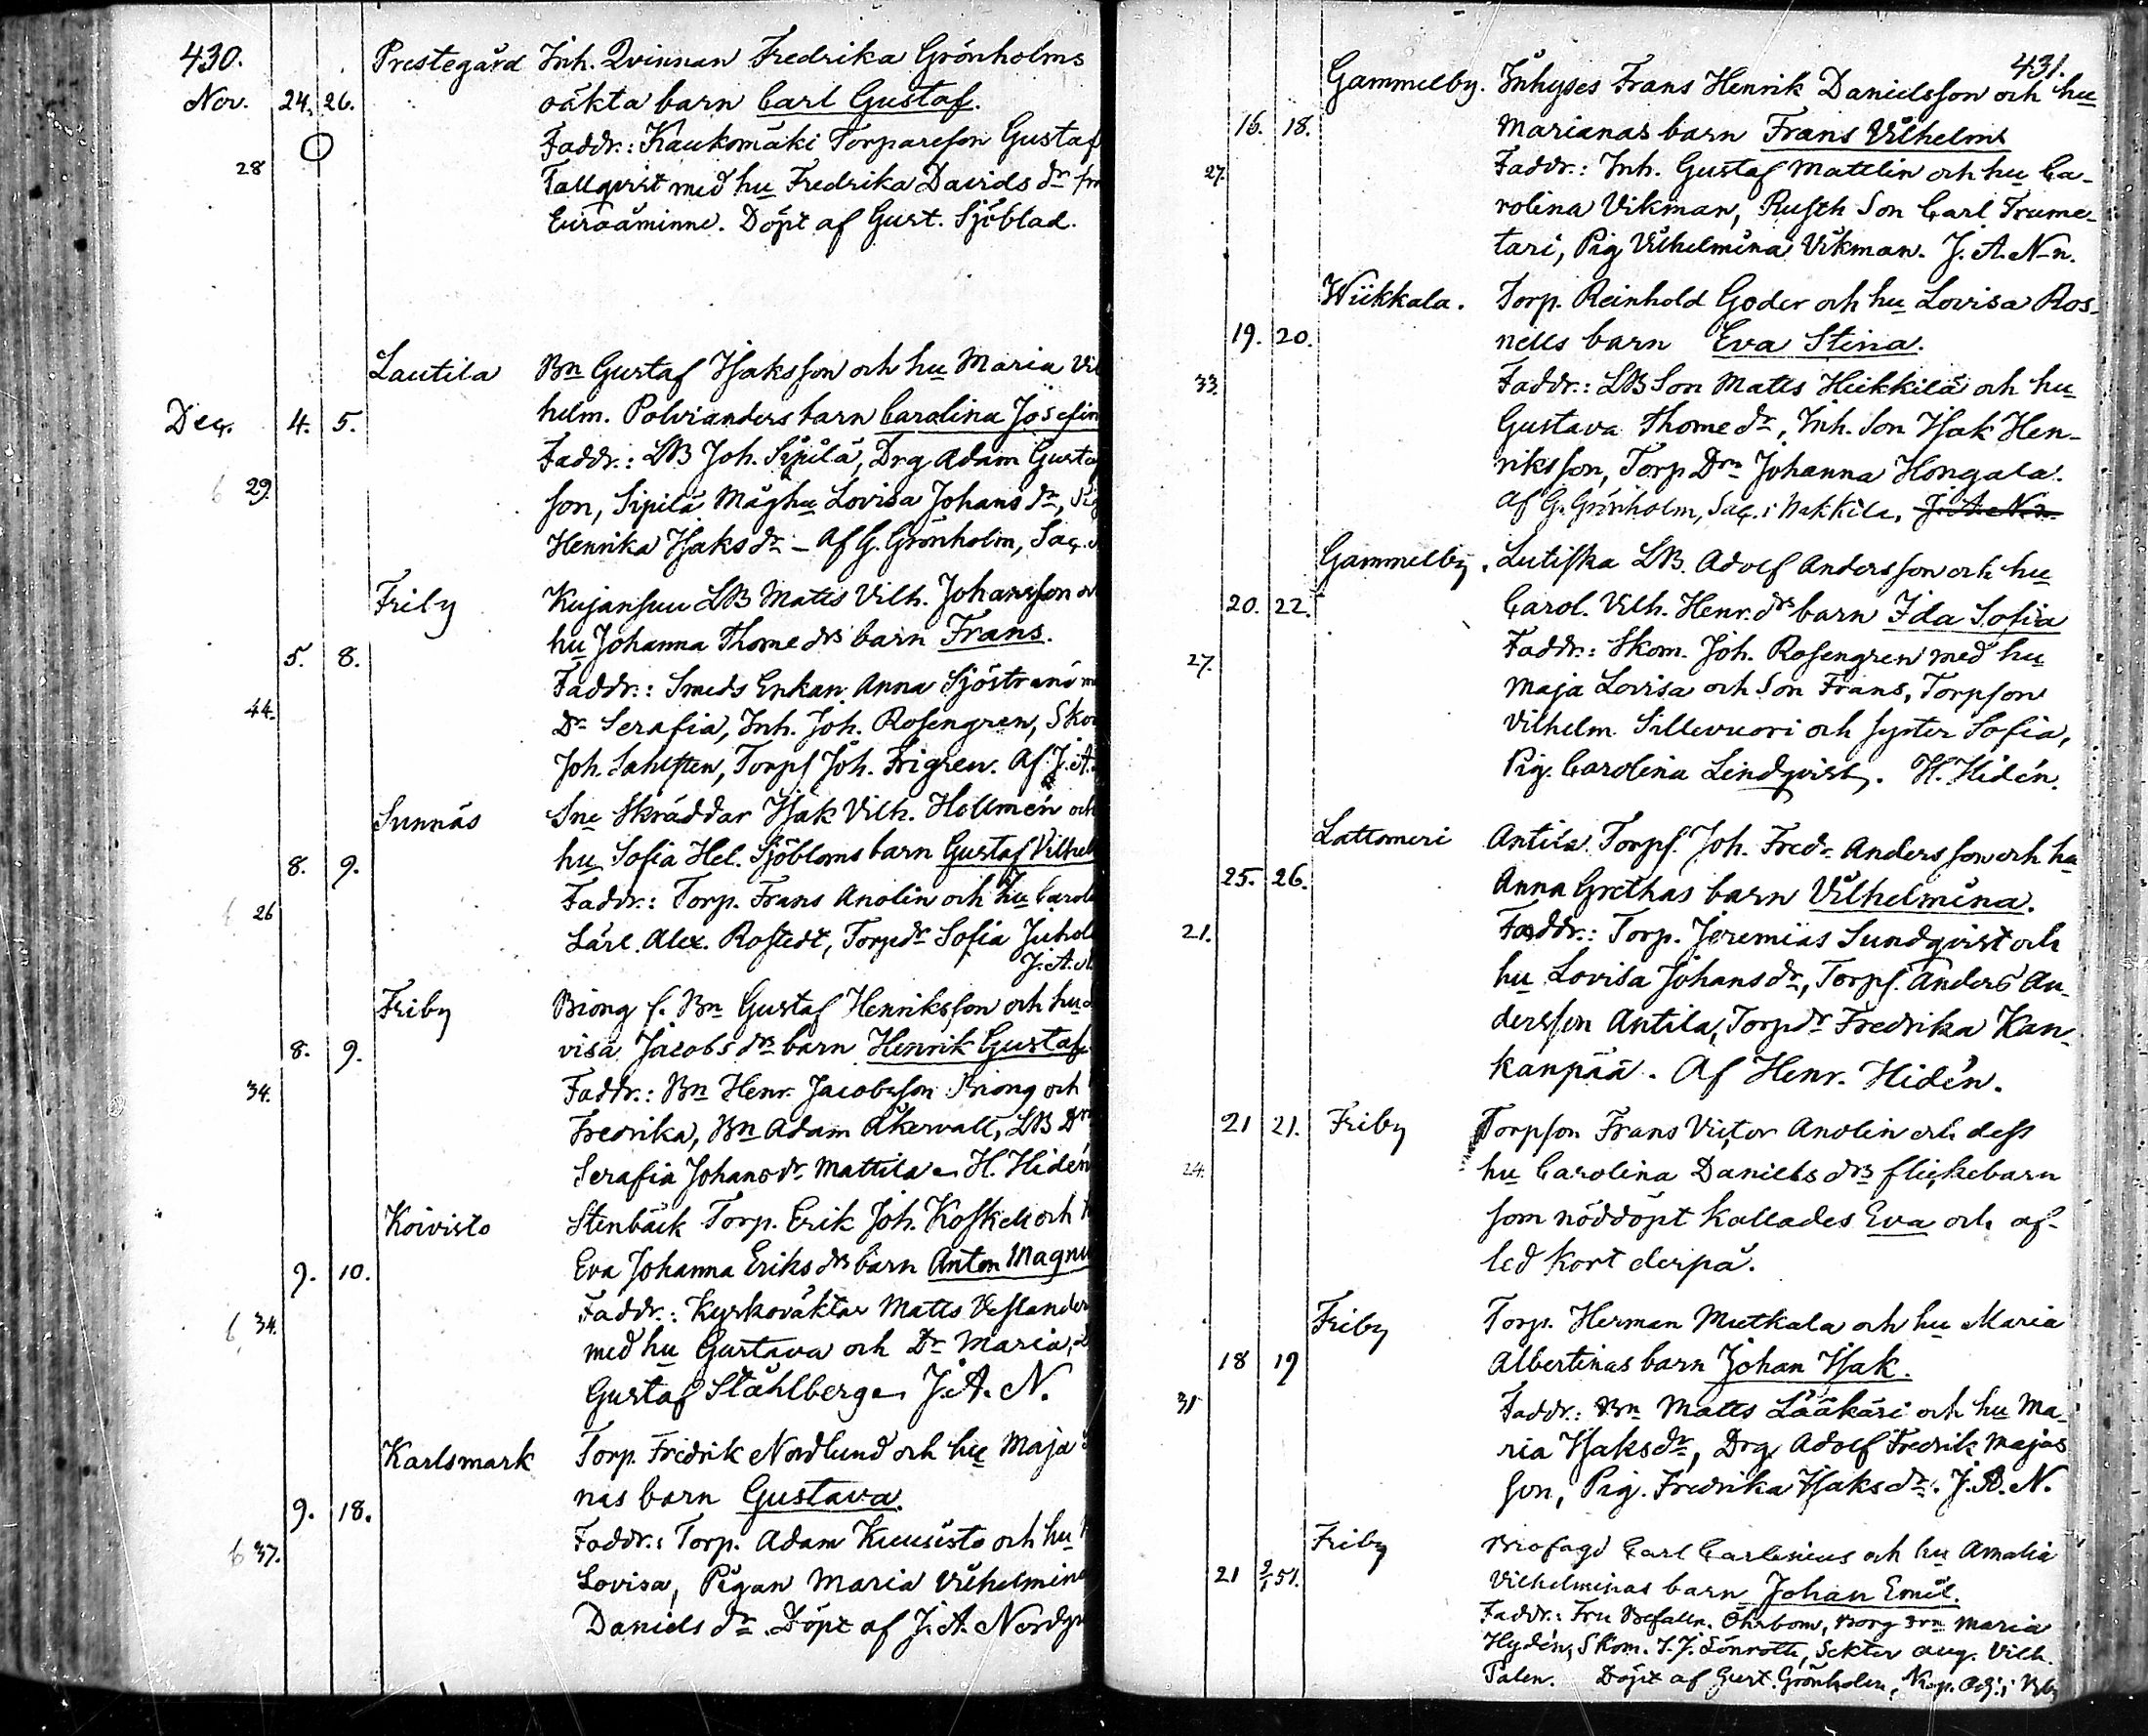 430.
Prestegård Inh. Qvinnan Fredrika Grönholms
Nov. 24. 26. oäkta barn Carl Gustaf.
Faddr.: Kaukomäki Torpareson Gustaf
28 Tallqvist med hu Fredrika Davids dr
Euraåminne. Döpt af Gust. Sjöblad.
Lautila Bn Gustaf Isaksson och hu Maria Vil
Dec. 4. 5. helm. Polvianders barn Carolina Josefin
Faddr.: LB Joh. Sipilä, Drg Adam Gusta
6 29. son, Sipilä Måghu Lovisa Johans dr,
Henrika Isaks dr – Af G. Grönholm, Sac.
Friby Kujansuu LB Matts Vilh. Johansson
5. 8. hu Johanna Thome drs barn Frans.
Faddr.: Smeds Enkan Anna Sjöstrand
44. Dr Serafia, Inh. Joh. Rosengren, Sko
Joh. Sahlsten, Torps Joh. Frigren. Af J. A.
Sunnäs Sne Skräddar Isak Vilh. Hollmén och
8. 9. hu Sofia Hel. Sjöbloms barn Gustaf Vilhel
6 26 Faddr.: Torp. Frans Anolin och hu Carol
Lärl. Alex. Rostedt, Torpdr Sofia Juhol
J. A.
Friby Biong f. Bn Gustaf Henriksson och hu
8. 9. visa Jacobs drs barn Henrik Gustaf
34. Faddr.: Bn Henr. Jacobsson Biong och
Fredrika, Bn Adam Åkervall, LB Dr
Serafia Johans dr Mattila. H. Hidén
Koivisto Stenbäck Torp. Erik Joh. Koskeli och
9. 10. Eva Johanna Eriks drs barn Anton Magnu
6 34. Faddr.: Kyrkoväktar Matts Veslander
med hu Gustava och Dr Maria,
Gustaf Ståhlberg. J. A. N.
Karlsmark Torp. Fredrik Nordlund och hu Maja
9. 18. nas barn Gustava.
6 37. Faddr.: Torp. Adam Kuusisto och hu
Lovisa, Pigan Maria Vilhelmina
Daniels dr. Döpt af J. A. Nordg
431.
Gammelby. Inhyses Frans Henrik Danielsson och hu
16. 18. Marianas barn Frans Vilhelm
27. Faddr.: Inh. Gustaf Mattlin och hu Ca-
rolina Vikman, Rusth Son Carl Trume-
tari, Pig Vilhelmina Vikman. J. A. N-n.
Wiikkala. Torp. Reinhold Goder och hu Lovisa Ros-
19. 20. nells barn Eva Stina.
33. Faddr.: LB Son Matts Heikkilä och hu
Gustava Thome dr, Inh. Son Isak Hen-
riksson, Torp Drn Johanna Hongala.
Af G. Grönholm, Sac. i Nakkila. J. A. N-n.
Gammelby. Lutiska LB. Adolf Andersson och hu
20. 22. Carol. Vilh. Henr. drs barn Ida Sofia
27. Faddr.: Skom. Joh. Rosengren med hu
Maja Lovisa och Son Frans, Torpson
Vilhelm Sillevuori och syster Sofia,
Pig. Carolina Lindqvist. H. Hidén.
Lattomeri Antila Torps. Joh. Fredr. Andersson och hu
25. 26. Anna Grethas barn Vilhelmina.
21. Faddr.: Torp. Jeremias Sundqvist och
hu Lovisa Johans dr, Torps. Anders An-
dersson Antila, Torpdr Fredrika Kan-
kanpää. Af Henr. Hidén.
21 21. Friby Torpson Frans Victor Anolin och dess
24. hu Carolina Daniels drs flickebarn
som nöddöpt kallades Eva och af-
led kort derpå.
Friby Torp. Herman Muetkala och hu Maria
18 19 Albertinas barn Johan Isak.
31 Faddr.: Bn Matts Lääkäri och hu Ma-
ria Isaks dr, Drg Adolf Fredrik Majas
son, Pig. Fredrika Isaks dr. J. A. N.
Friby Brofogd Carl Carlenius och hu Amalia
21 2/1 51. Vilhelminas barn Johan Emil.
Faddr.: Fru Befalln. Öhrbom, Borg Drn Maria
Hydén, Skom. J. J. Lönroth, Sekter Aug. Vilh.
Palen. Döpt af Gust. Grönholm, Kap. Adj. i